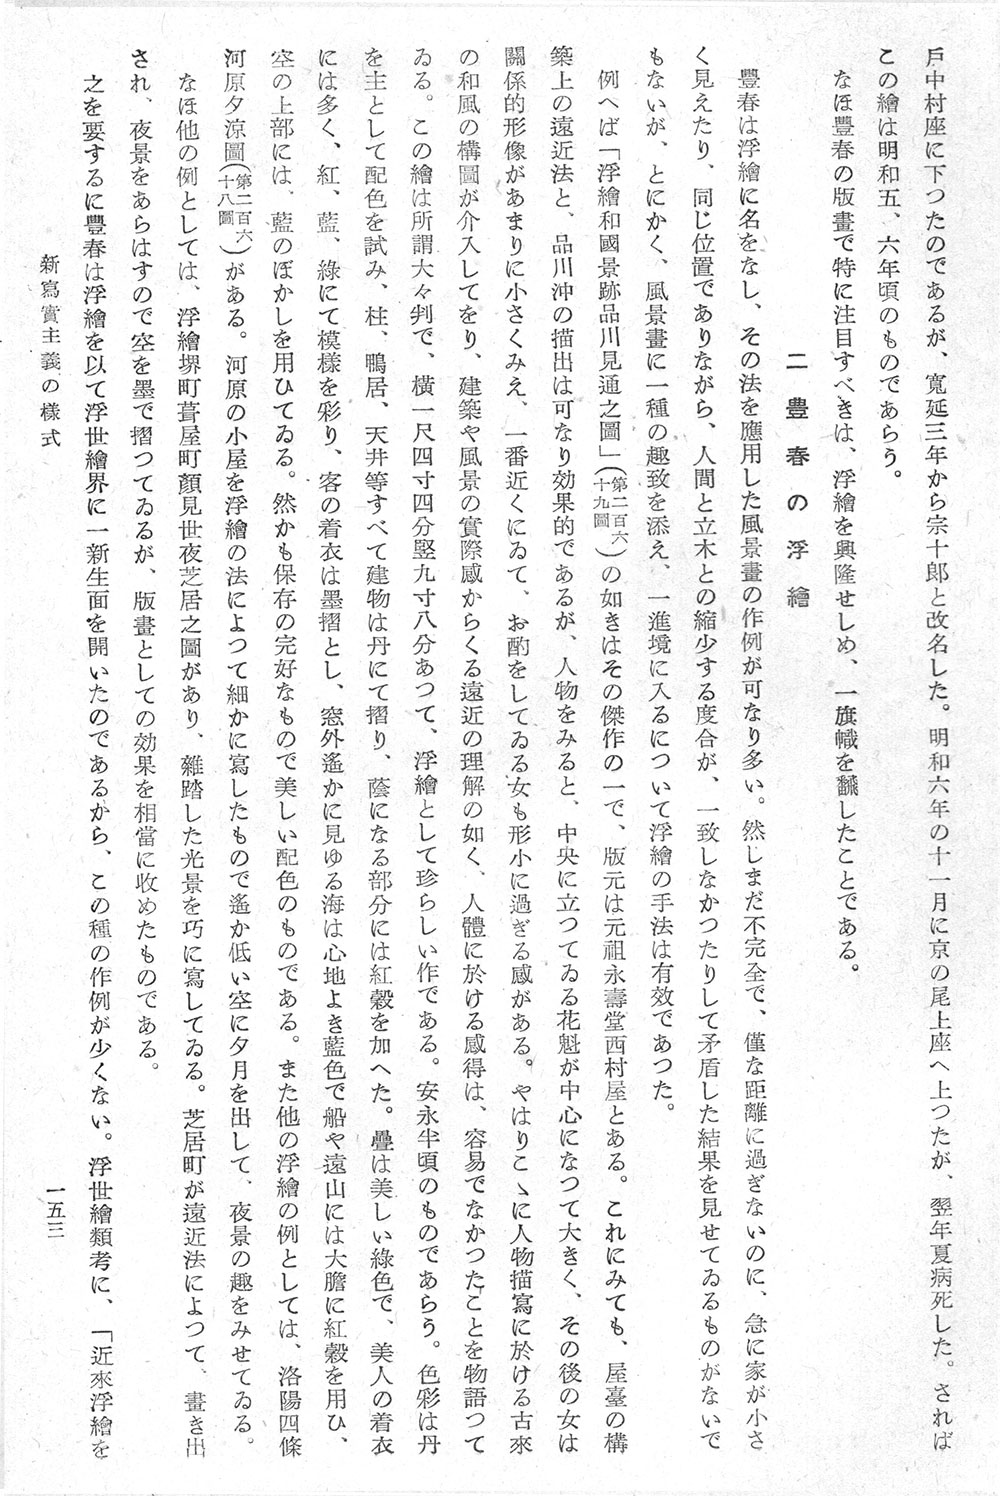 戶中村座に下つたのであるが、寬延三年から宗十郎と改名した。明和六年の十一月に京の尾上座へ上つたが、翌年夏病死した。されば
この繪は明和五、六年頃のものであらう。
なほ豐春の版畫で特に注目すべきは、浮繪を興隆せしめ、一旗幟を飜したことである。
二 豐春の浮繪
豐春は浮繪に名をなし、その法を應用した風景畫の作例が可なり多い。然しまだ不完全で、僅な距離に過ぎないのに、急に家が小さ
く見えたり、同じ位置でありながら、人間と立木との縮少する度合が、一致しなかつたりして矛盾した結果を見せてゐるものがないで
もないが、とにかく、風景畫に一種の趣致を添え、一進境に入るについて浮繪の手法は有效であつた。
例へば「浮繪和國景跡品川見通之圖」(第二百六十九圖)の如きはその傑作の一で、版元は元祖永壽堂西村屋とある。これにみても、屋臺の構
築上の遠近法と、品川沖の描出は可なり効果的であるが、人物をみると、中央に立つてゐる花魁が中心になつて大きく、その後の女は
關係的形像があまりに小さくみえ、一番近くにゐて、お酌をしてゐる女も形小に過ぎる感がある。やはりこゝに人物描寫に於ける古來
の和風の構圖が介入してをり、建築や風景の實際感からくる遠近の理解の如く、人體に於ける感得は、容易でなかつたことを物語つて
ゐる。この繪は所謂大々判で、橫一尺四寸四分竪九寸八分あつて、浮繪として珍らしい作である。安永半頃のものであらう。色彩は丹
を主として配色を試み、柱、鴨居、天井等すべて建物は丹にて摺り、蔭になる部分には紅穀を加へた。疊は美しい綠色で、美人の着衣
には多く、紅、藍、綠にて模樣を彩り、客の着衣は墨摺とし、窓外遙かに見ゆる海は心地よき藍色で船や遠山には大膽に紅穀を用ひ、
空の上部には、藍のぼかしを用ひてゐる。然かも保存の完好なもので美しい配色のものである。また他の浮繪の例としては、洛陽四條
河原夕涼圖(第二百六十八圖)がある。河原の小屋を浮繪の法によつて細かに寫したもので遙か低い空に夕月を出して、夜景の趣をみせてゐる。
なほ他の例としては、浮繪堺町葺屋町顏見世夜芝居之圖があり、雜踏した光景を巧に寫してゐる。芝居町が遠近法によつて、畫き出
され、夜景をあらはすので空を墨で摺つてゐるが、版畫としての効果を相當に收めたものである。
之を要するに豐春は浮繪を以て浮世繪界に一新生面を開いたのであるから、この種の作例が少くない。浮世繪類考に、「近來浮繪を
新寫實主義の樣式
一五三